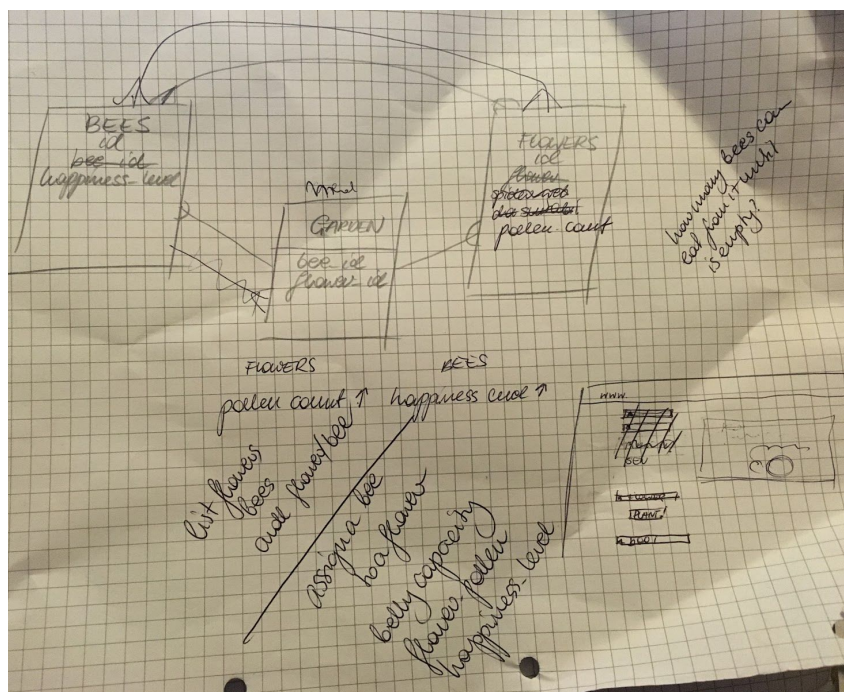 BEES
id
bee_id
happiness_level
GARDEN
bee_id
flower_id
FLOWERS
id
flower
pollen count
how many bees can
eat from it until
is empty?
FLOWERS
pollen count ↑
BEES
happiness level ↑
list flowers
bees
flower/bee
assign a bee
to a flower
belly capacity
flower_pollen
happiness_level
www.
PLANT!